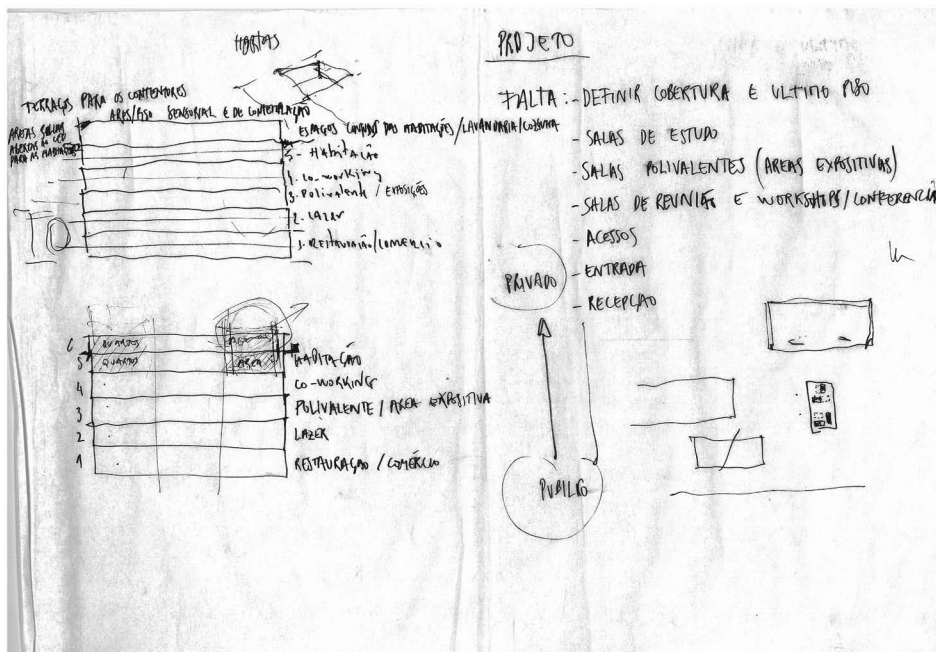 HORTAS
TERRAÇOS PARA OS CONTENTORES
ARES/PISO SENSORIAL E DE CONTEMPLAÇÃO
ABERTAS AO CÉU
PARA AS HABITAÇÕES
ESPAÇOS COMUNS DAS HABITAÇÕES/LAVANDARIA/COZINHA
5 - HABITAÇÃO
4. CO-WORKING
3. POLIVALENTE / EXPOSIÇÕES
2. LAZER
1. RESTAURAÇÃO/COMERCIO
6 QUARTOS AREA
5 QUARTOS AREA HABITAÇÃO
4 CO-WORKING
3 POLIVALENTE / AREA EXPOSITIVA
2 LAZER
1 RESTAURAÇÃO / COMÉRCIO
PROJETO
FALTA: - DEFINIR COBERTURA E ULTIMO PISO
- SALAS DE ESTUDO
- SALAS POLIVALENTES (AREAS EXPOSITIVAS)
- SALAS DE REUNIÃO E WORKSHOPS/CONFERENCIA
- ACESSOS
- ENTRADA
- RECEPÇÃO
PRIVADO
PUBLICO